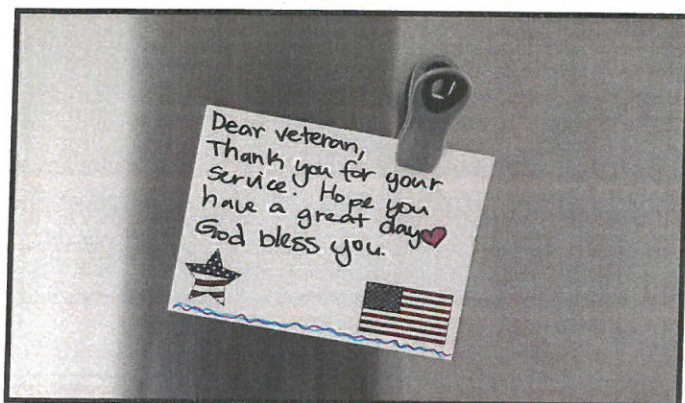 Dear veteran,
Thank you for your
service. Hope you
have a great day
God bless you.